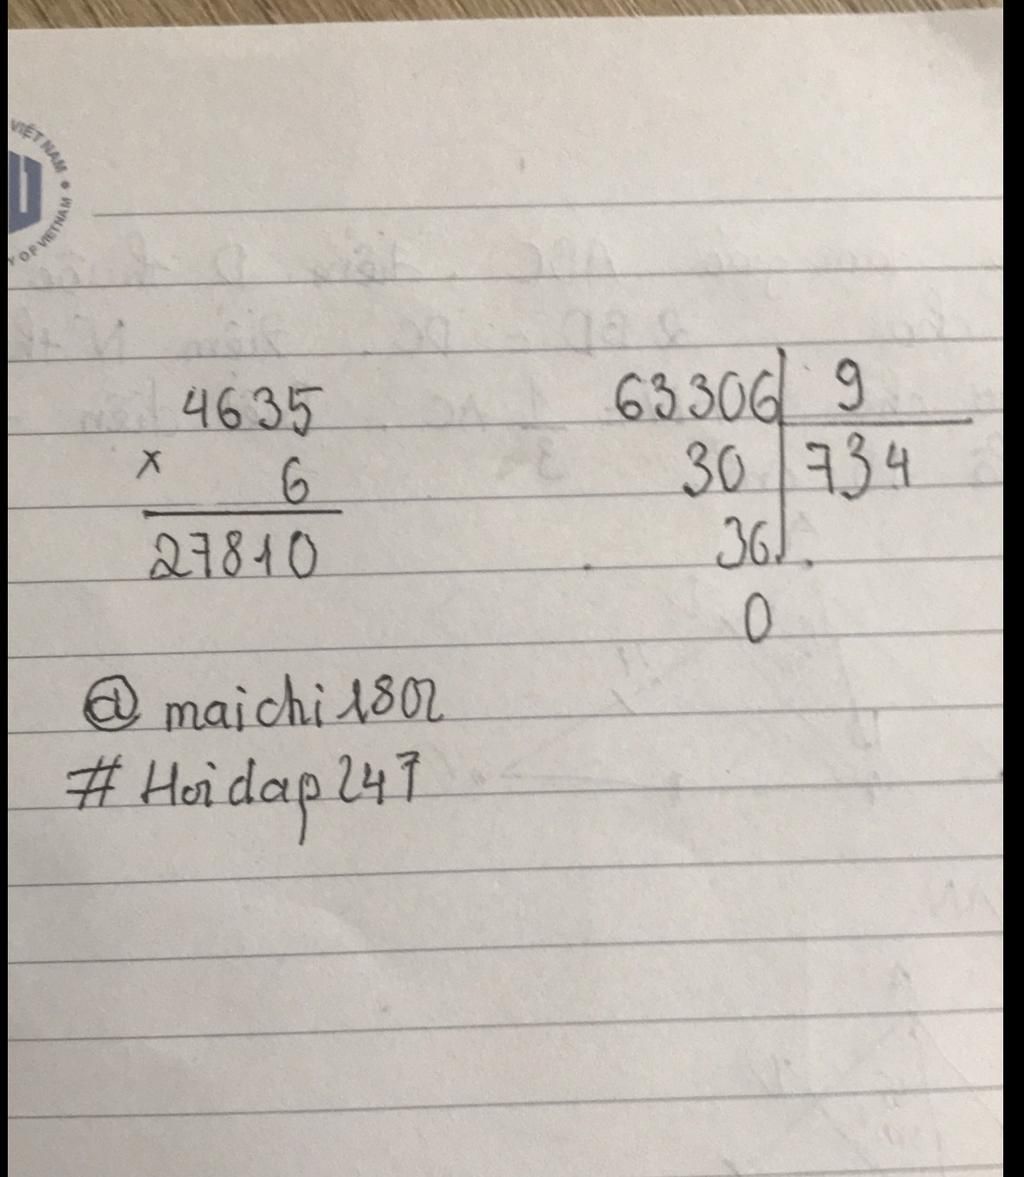 VIỆT NAM
Y OF VIETNAM
4635
x 6
27810
63306 9
30 734
36
0
@maichi1802
#Hoidap247